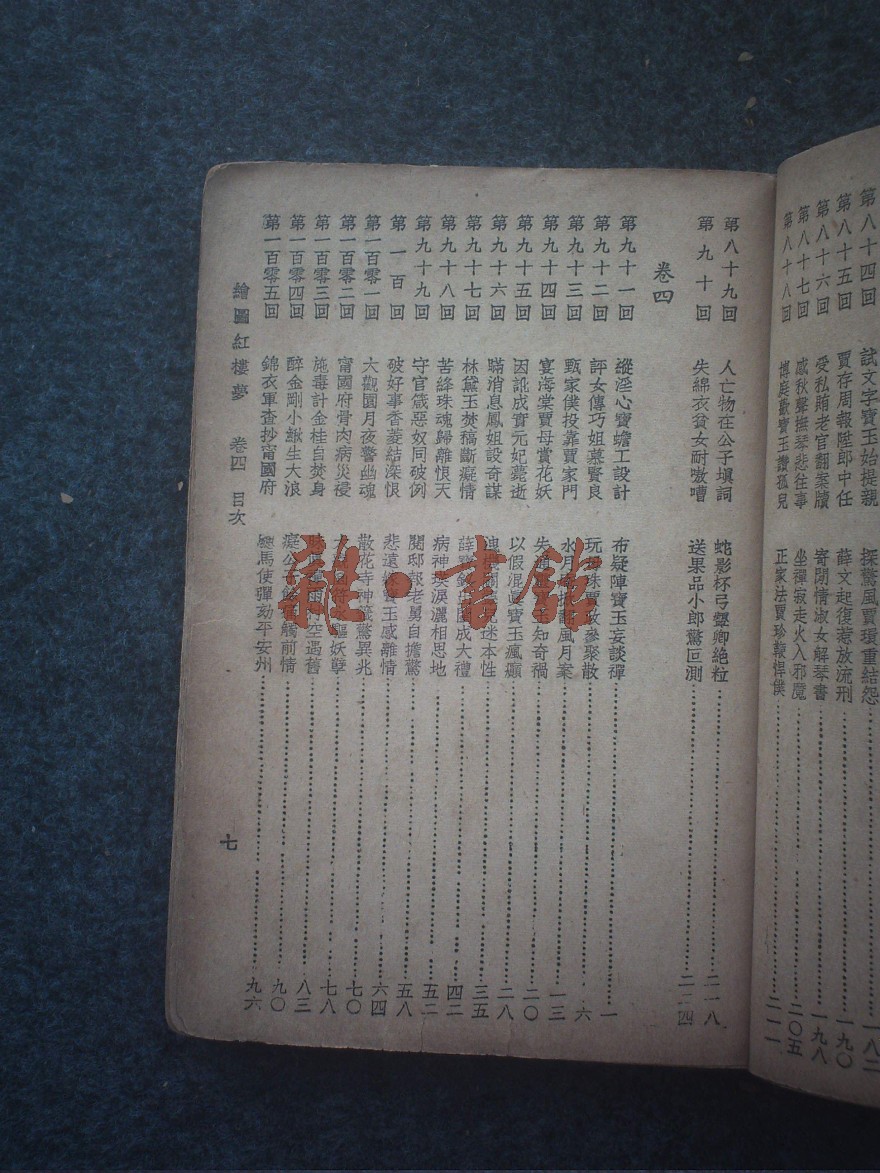 第八十四回 試文字寶玉始提親 探驚風賈環重結怨 一八二
第八十五回 賈存周報陞郎中任 薛文起復惹放流刑 一九〇
第八十六回 受私賄老官翻案牘 寄閒情淑女解琴書 一九八
第八十七回 感秋聲撫琴悲往事 坐禪寂走火入邪魔 二〇五
第八十八回 博庭歡寶玉讚孤兒 正家法賈珍鞭悍僕 二一一
第八十九回 人亡物在公子塡詞 蛇影杯弓顰卿絶粒 二一八
第九十回 失綿衣貧女耐嗷嘈 送果品小郎驚叵測 二二四
卷四
第九十一回 縱淫心寶蟾工設計 布疑陣寶玉妄談禪 一
第九十二回 評女傳巧姐慕賢良 玩母珠賈政參聚散 六
第九十三回 甄家僕投靠賈家門 水月掀翻風月案 一三
第九十四回 宴海棠賈母賞花妖 失寶玉知奇禍 二〇
第九十五回 因訛成實元妃薨逝 以假混眞寶玉瘋癲 二八
第九十六回 瞞消息鳳姐設奇謀 洩迷本性 三五
第九十七回 林黛玉焚稿斷癡情 薛寶成大禮 四二
第九十八回 苦絳珠魂歸離恨天 病神瑛淚灑相思地 五二
第九十九回 守官箴惡奴同破例 閱邸報老舅自擔驚 五八
第一百回 破好事香菱結深恨 悲遠嫁寶玉感離情 六四
第一百零一回 大觀園月夜警幽魂 散花寺神籤驚異兆 七〇
第一百零二回 甯國府骨肉病災祲 大觀園符水驅妖孽 七八
第一百零三回 施毒計金桂自焚身 昧禪雨村空遇舊 八三
第一百零四回 醉金剛小鰍生大浪 癡公子餘痛觸前情 九〇
第一百零五回 錦衣軍查抄甯國府 驄馬使彈劾平安州 九六
繪圖紅樓夢 卷四 目次
七
雜·書館